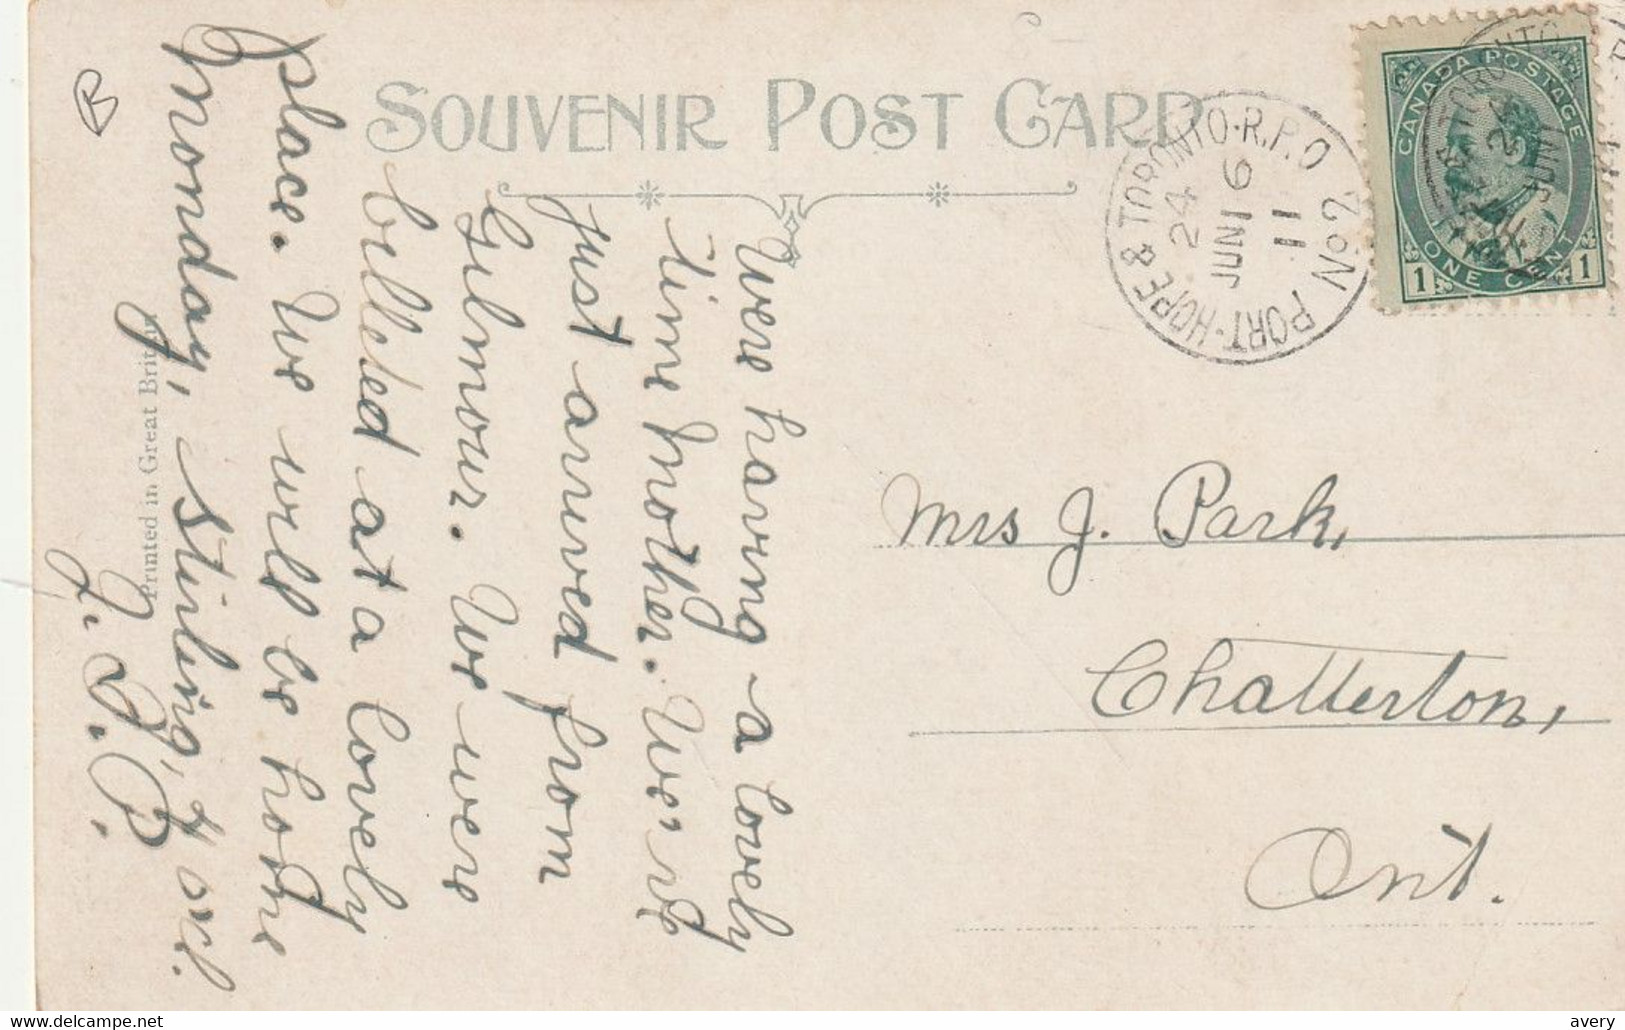 SOUVENIR POST CARD
CANADA POSTAGE
1 ONE CENT 1
PORT-HOPE & TORONTO·R.P.O No 2
24
JUN 6
11
Were having a lovely
time Mother. We've
just arrived from
Gilmour. We were
billeted at a lovely
place. We will be home
Monday, Stirling, 4 ocl.
J. S. P.
Mrs J. Park,
Chatterton,
Ont.
Printed in Great Britain
B
avery